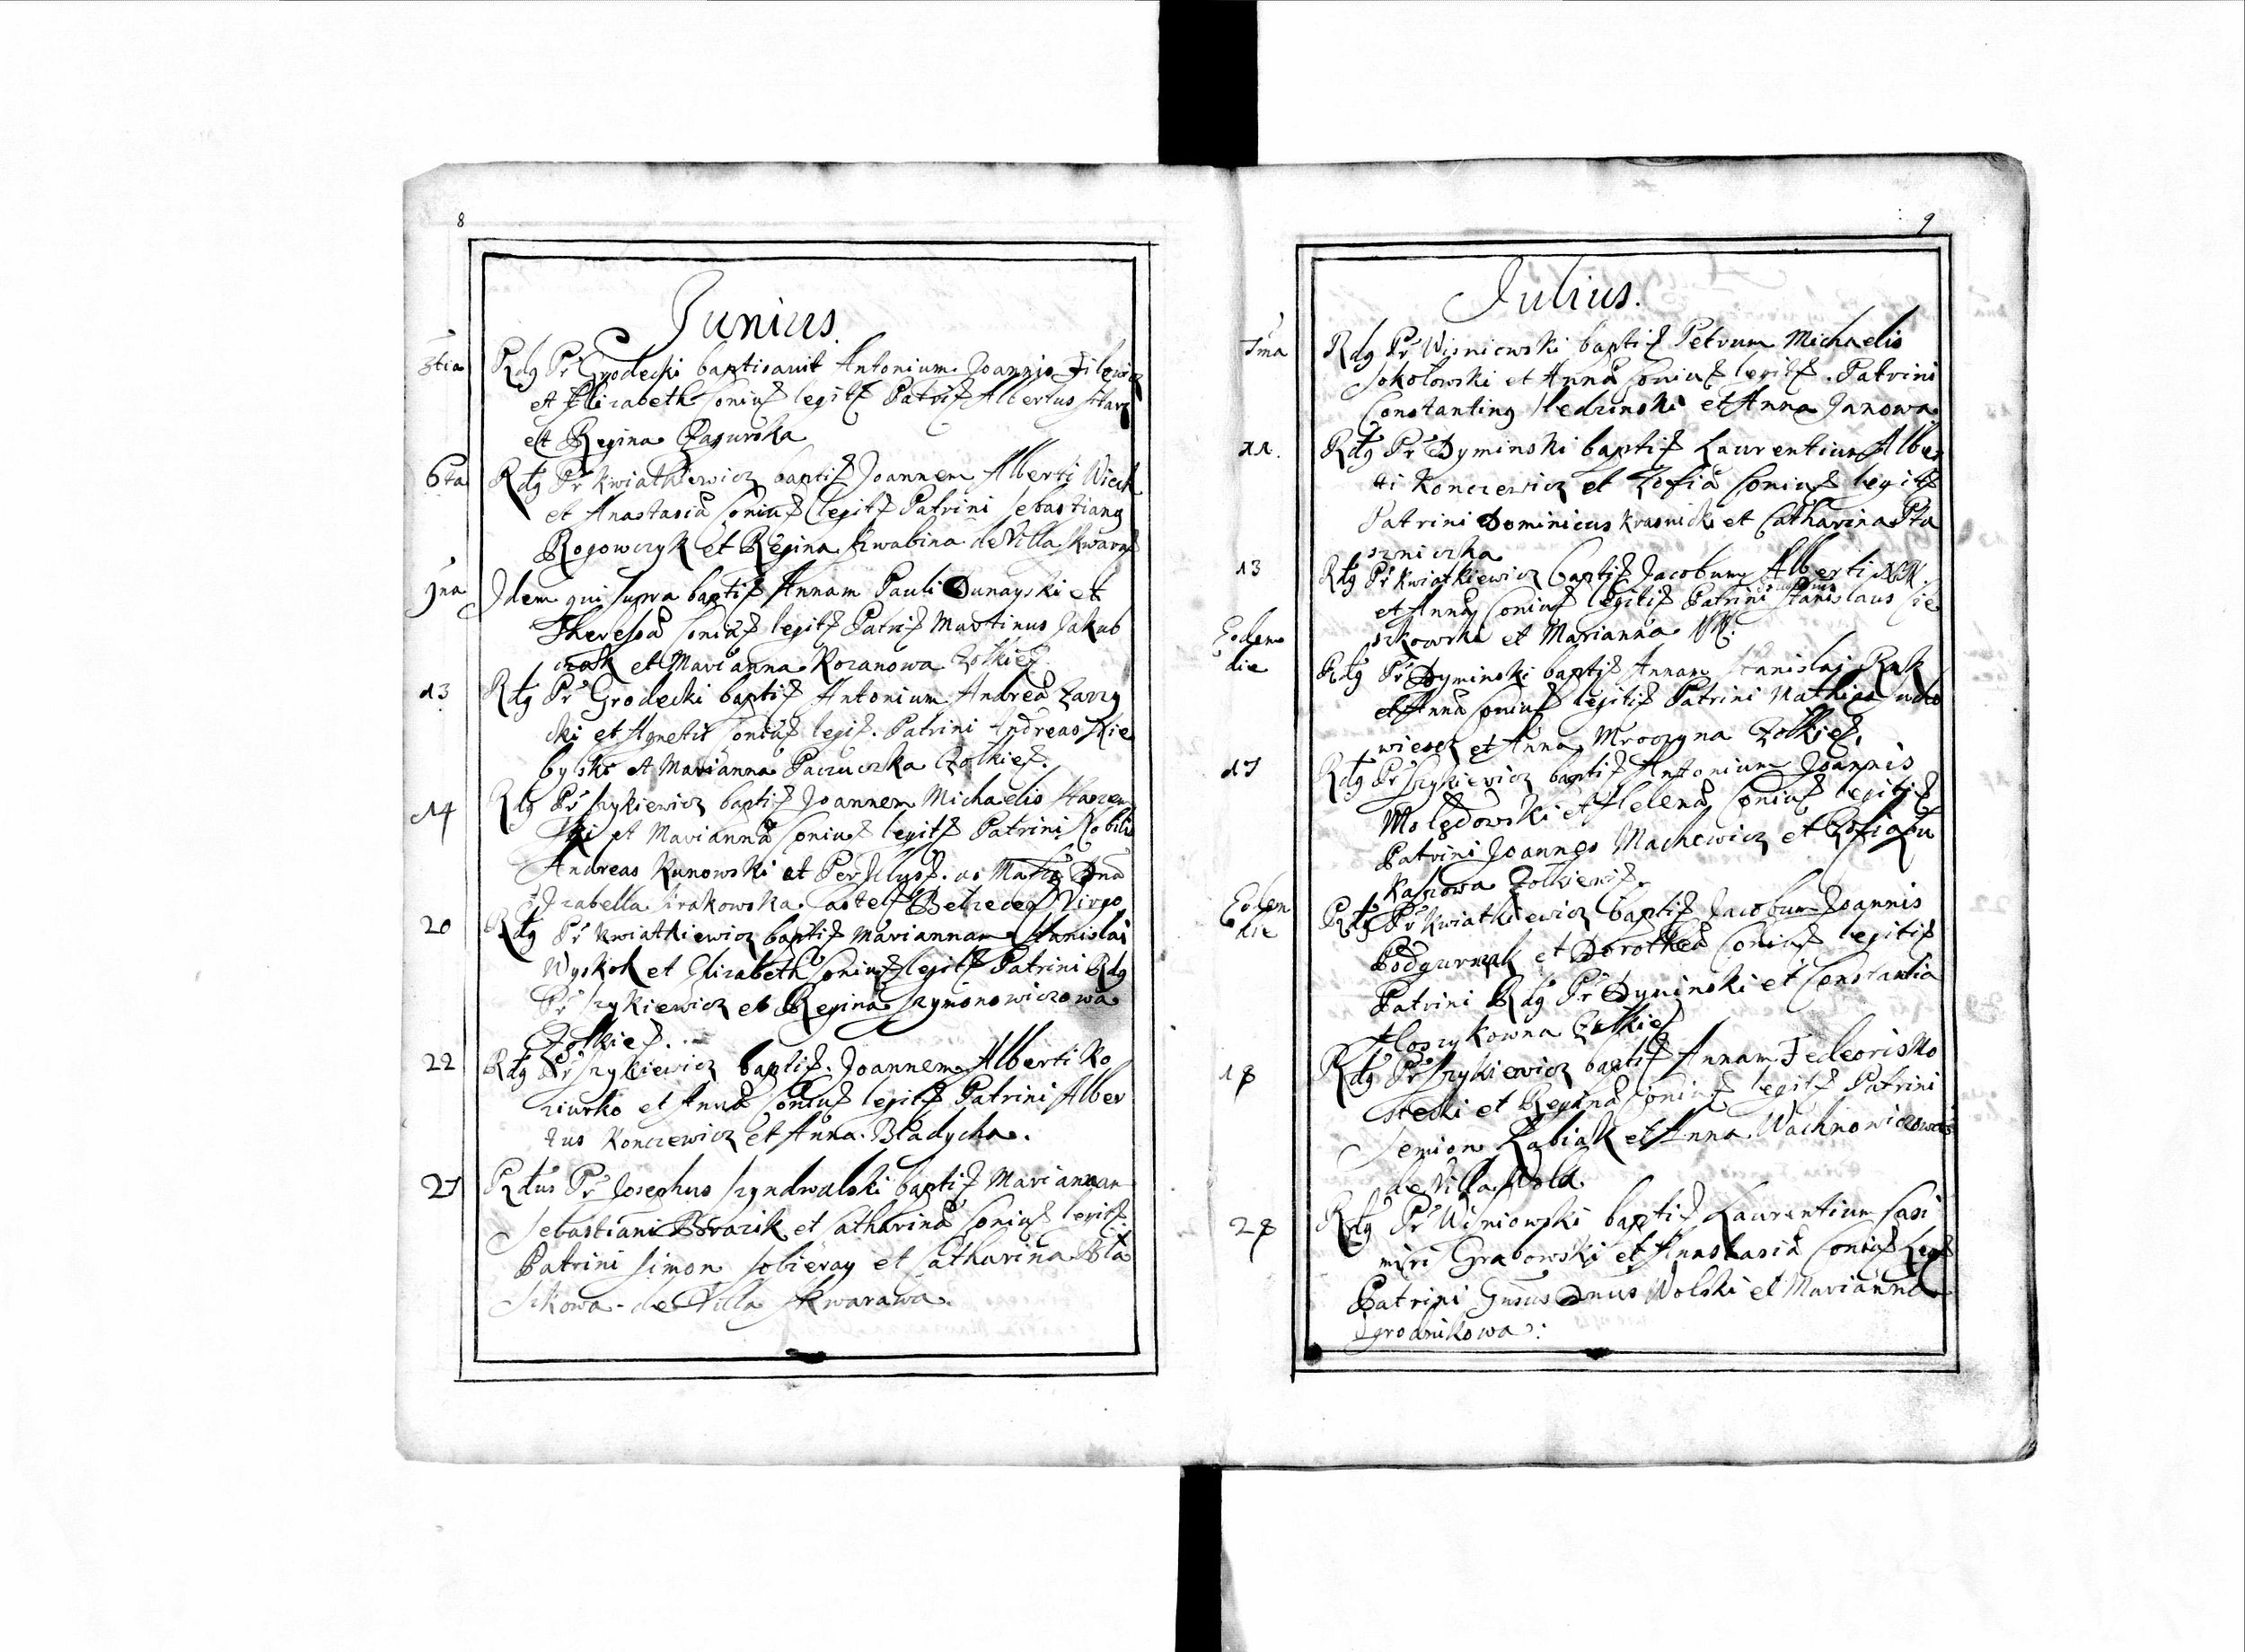 8
Junius.
3tia Rdg Pr Grodecki baptisavit Antonium Joannis Filewicz
et Elizabeth Coniuz legitz Patriz Albertus
et Regina
6ta Rdg Pr Kwiatkiewicz baptiz Joannem Alberti Wiech
et Anastasia Coniuz legitz Patrini Sebastiang
Rogowczyk et Regina Szwabina de Villa Skwarz
9na Idem qui supra baptiz Annam Pauli Dunayski et
Theressa Coniuz legitz Patriz Martinus Jakub
czak et Marianna Kozanowa Zolkiez.
13 Rdg Pr Grodecki baptiz Antonium Andrea Zarzy
cki et Agnetis Coniuz legiz. Patrini Andreas Skie
bylski et Marianna Paczuczka Zolkiez.
14 Rdg Pr Szykiewicz baptiz Joannem Michaelis
ski et Marianna Coniuz legitz Patrini Nobilis
Andreas Kunowski et ac Dna
Izabella Sirakowska Castelz Belzecez Virgo
20 Rdg Pr Kwiatkiewicz baptiz Mariannam Stanislai
Wyskok et Elizabeth Coniuz legitz Patrini Rdg
Pr Szykiewicz et Regina Szymonowiczowa
Zolkiez.
22 Rdg Pr Szykiewicz baptiz. Joannem Alberti Ko
ziurko et Anna Coniuz legitz Patrini Alber
tus Konczewicz et Anna Bladycha.
27 Rdus Pr Josephus Szyndwalski baptiz Mariannam
Sebastiani Brazik et Catharina Coniuz legitz
Patrini Simon Sobieray et Catharina Bla
szkowa de Villa Skwarawa.
9
Julius.
1ma Rdg Pr Wisniewski baptiz Petrum Michaelis
Sokolowski et Anna Coniuz legitz. Patrini
Constanting Sledzinski et Anna Janowa
11. Rdg Pr Dyminski baptiz Laurentium Alber
ti Konczewicz et Zofia Coniuz legitz
Patrini Dominicus Krasnicki et Catharina Pta
szniczka
13 Rdg Pr Kwiatkiewicz baptiz Jacobum Alberti NN.
et Anna Coniuz legitiz Patrini Stanislaus Cie
szkowski et Marianna NN.
Eodem
die Rdg Pr Dyminski baptiz Annam Stanislai Ruk
et Anna Coniuz legitiz Patrini Mathias Sudo
wieser et Anna Mroczyna Zolkiez.
17 Rdg Pr Szykiewicz baptiz Antonium Joannis
Molędowski et Helena Coniuz legitiz
Patrini Joannes Machewicz et Zofia Lu
kaszowa Zolkiewiz.
Eodem
die Rdg Pr Kwiatkiewicz baptiz Jacobum Joannis
Podgurniak et Dorothea Coniuz legitiz
Patrini Rdg Pr Dyminski et Constantia
Hoszykowna Zolkiez
18 Rdg Pr Szykiewicz baptiz Annam Fedeoris Ko
stecki et Regina Coniuz legitz Patrini
Semion Babiak et Anna Wachnowiczowa
de Villa Wola
28 Rdg Pr Wisniowski baptiz Laurentium Casi
miri Grabowski et Anastasia Coniuz Legz
Patrini Gnsus Dnus Wolski et Marianna
Ogrodnikowa: